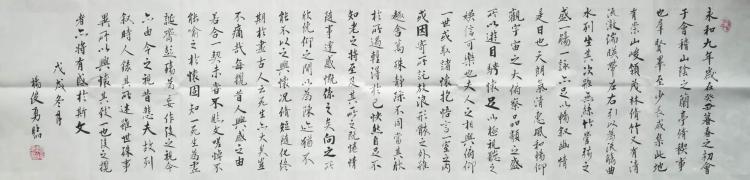 永和九年歲在癸丑暮春之初會
于會稽山陰之蘭亭脩稧事
也羣賢畢至少長咸集此地
有崇山峻領茂林脩竹又有清
流激湍暎帶左右引以為流觴曲
水列坐其次雖無絲竹管弦之
盛一觴一詠亦足以暢叙幽情
是日也天朗氣清惠風和暢仰
觀宇宙之大俯察品類之盛
所以遊目騁懷足以極視聽之
娛信可樂也夫人之相與俯仰
一世或取諸懷抱悟言一室之內
或因寄所託放浪形骸之外雖
趣舍萬殊靜躁不同當其欣
於所遇輕得於己怏然自足不
知老之將至及其所之既惓情
隨事遷感慨係之矣向之所
欣俛仰之間以為陳迹猶不
能不以之興懷況脩短隨化終
期於盡古人云死生亦大矣豈
不痛哉每攬昔人興感之由
若合一契未嘗不臨文嗟悼不
能喻之於懷固知一死生為虛
誕齊彭殤為妄作後之視今
亦由今之視昔悲夫故列
叙時人錄其所述雖世殊事
異所以興懷其致一也後之攬
者亦將有感於斯文
戊戌冬月
楊俊勇臨